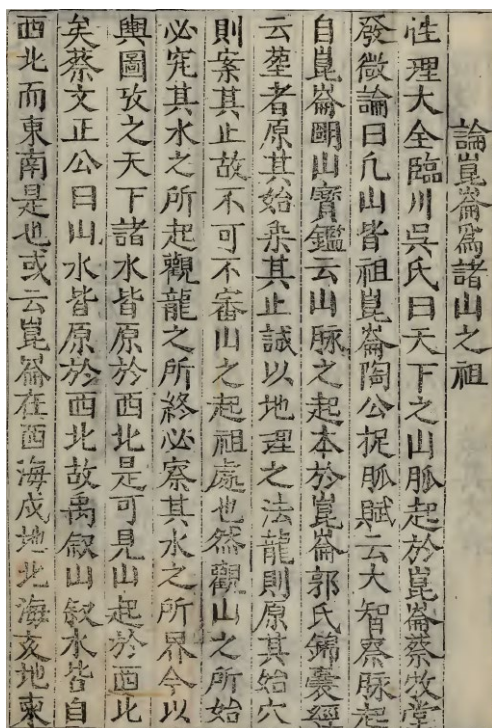 論崑崙爲諸山之祖
性理大全臨川吳氏曰天下之山脉起於崑崙蔡牧堂
發微論曰凢山皆祖崑崙陶公捉脉賦云大智察脉起
自崑崙明山寳鑑云山脉之起本於崑崙郭氏錦囊經
云葬者原其始乗其止誠以地理之法龍則原其始穴
則案其止故不可不審山之起祖處也然觀山之所始
必究其水之所起觀龍之所終必察其水之所界今以
輿圖攷之天下諸水皆原於西北是可見山起於西北
矣蔡文正公曰山水皆原於西北故禹叙山叙水皆自
西北而東南是也或云崑崙在西海戍地北海亥地東